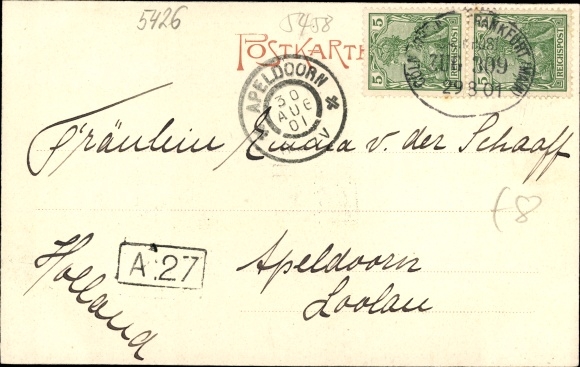 5426
5458
POSTKARTE
5
REICHSPOST
5
REICHSPOST
FRANKFURT (MAIN)
ZUG 309
29 8 01
APELDOORN
30
AUG
01
Fräulein Emma v. d. Schaaff
Apeldoorn
Loolaan
Holland
A.27